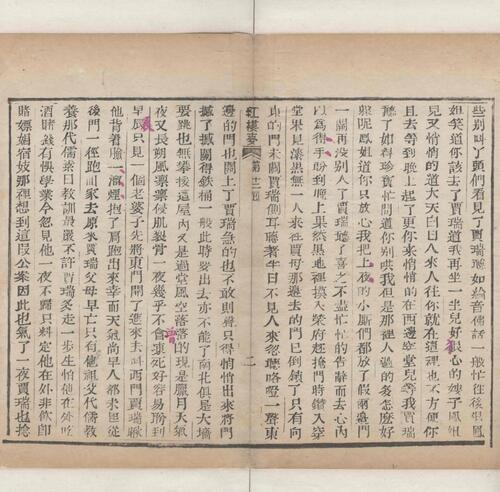 些別叫丫頭們看見了賈瑞聽如綸音佛語一般忙往後退鳳
姐笑道你該去了賈瑞道我再坐一坐兒好狠心的嫂子鳳姐
兒又悄悄的道大天白日人來人往你就在這裡也不方便你
且去等到晚上起了更你來悄悄的在西邊穿堂兒等我賈瑞
聽了如得珍寶忙問道你別哄我但是那裡人過的多怎麼好
躲呢鳳姐道你只放心我把上夜的小厮們都放了假兩邊門
一關再沒別人了賈瑞聽了喜之不盡忙忙的告辭而去心內
以為得手盼到晚上果然黑地裡摸入榮府趁掩門時鑽入穿
堂果見漆黑無一人來往賈母那邊去的門已倒鎖了只有向
東的門未關賈瑞側耳聽着半日不見人來忽聽咯噔一聲東
紅樓夢 第十二回 二
邊的門也關上了賈瑞急的也不敢則聲只得悄悄出來將門
撼了撼關得鐵桶一般此時要出去亦不能了南北俱是大墻
要跳也無攀援這屋內又是過堂風空落落的現是臘月天氣
夜又長朔風凜凜侵肌裂骨一夜幾乎不曾凍死好容易盼到
早晨只見一個老婆子先將東門開了進來去叫西門賈瑞瞅
他背着臉一溜煙抱了肩跑出來幸而天氣尚早人都未起從
後門一徑跑回家去原來賈瑞父母早亡只有他祖父代儒教
養那代儒素日教訓最嚴不許賈瑞多走一步生怕他在外吃
酒賭錢有悞學業今忽見他一夜不歸只料定他在外非飲卽
賭嫖娼宿妓那裡想到這段公案因此也氣了一夜賈瑞也捻